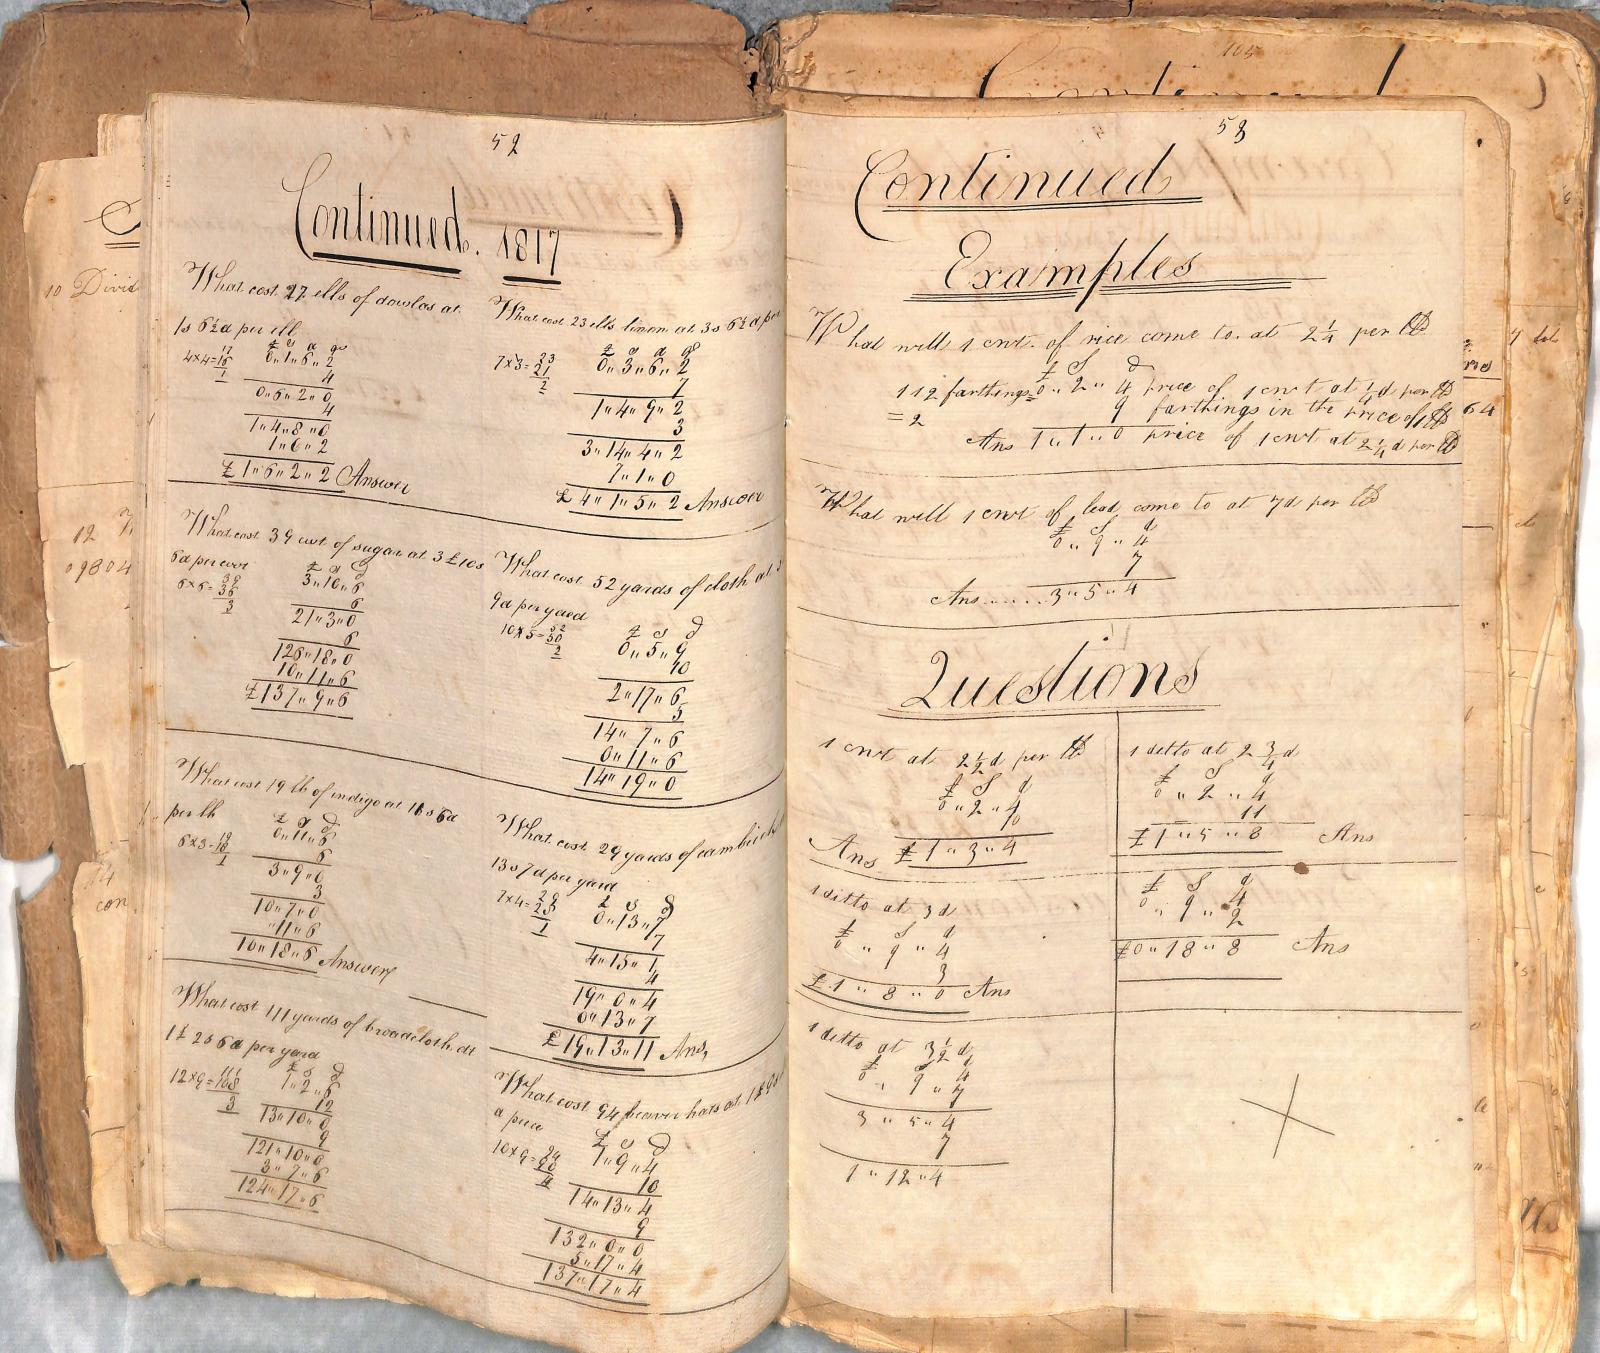 52
Continued. 1817
What cost 27 ells of dowlas at
1s 6½d per ell
£ s d qr
4x4=16
0„1„6„2
1
4
0„6„2„0
4
1„4„8„0
1„6„2
£1„6„2„2 Answer
What cost 39 cwt of sugar at 3£10s
6d per cwt
£ s d
39
6x6=36
3„10„6
3
6
21„3„0
6
126„18„0
10„11„6
£137„9„6
What cost 19 lb of indigo at 11s 6d
per lb
£ s d
19
6x3=18
0„11„6
1
6
3„9„0
3
10„7„0
„11„6
10„18„6 Answer
What cost 111 yards of broadcloth at
1£ 2s 6d per yard
£ s d
111
12x9=108
1„2„6
3
12
13„10„0
9
121„10„0
3„7„6
124„17„6
What cost 23 ells linen at 3s 6½d per
£ s d qr
23
7x3=21
0„3„6„2
2
7
1„4„9„2
3
3„14„4„2
7„1„0
£4„1„5„2 Answer
What cost 52 yards of cloth at 5
9d per yard
£ s d
52
10x5=50
0„5„9
2
10
2„17„6
5
14„7„6
0„11„6
14„19„0
What cost 29 yards of cambrick
13s 7d per yard
£ s d
29
7x4=28
0„13„7
1
7
4„15„1
4
19„0„4
0„13„7
£19„13„11 Ans,
What cost 94 beaver hats at 1£ 9s
a piece
£ s d
94
10x9=90
1„9„4
4
10
14„13„4
9
132„0„0
5„17„4
137„17„4
53
Continued
Examples
What will 1 cwt. of rice come to. at 2¼ per lb
£ s d
112 farthings=0„2„4 price of 1 cwt at ¼d per lb
=2 9 farthings in the price of 1 lb
Ans 1„1„0 price of 1 cwt at 2¼d per lb
What will 1 cwt of lead come to at 7d per lb
£ s d
0„9„4
7
Ans......3„5„4
Questions
1 cwt at 2½d per lb
£ s d
0„2„4
10
Ans £1„3„4
1 ditto at 2¾d
£ s d
0„2„4
11
£1„5„8 Ans
1 ditto at 3d
£ s d
0„9„4
3
£1„8„0 Ans
£ s d
0„9„4
2
£0„18„8 Ans
1 ditto at 3½d
£ s d
0„9„4
7
3„5„4
7
1„12„4
105
Continued
10 Divid
12
09804
con
64